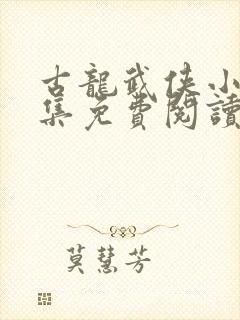 古龍武俠小
集免費閱讀
莫慧芳